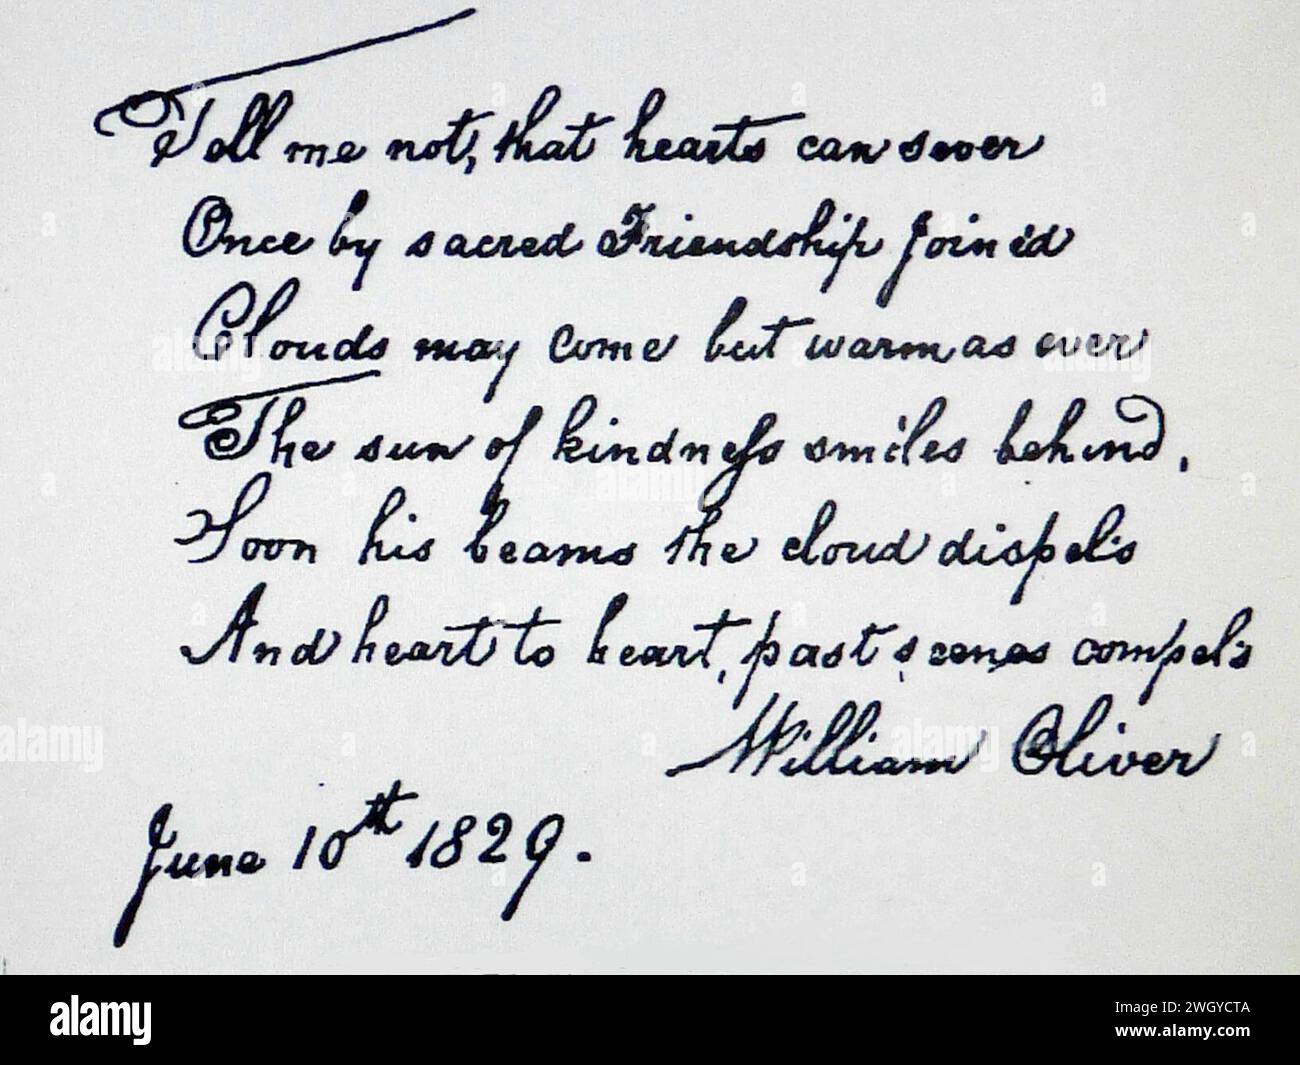 Tell me not, that hearts can sever
Once by sacred Friendship Join'd
Clouds may come but warm as ever
The sun of kindness smiles behind,
Soon his beams the cloud dispel's
And heart to heart, past scenes compel's
William Oliver
June 10th 1829.
alamy
Image ID: 2WGYCTA
www.alamy.com